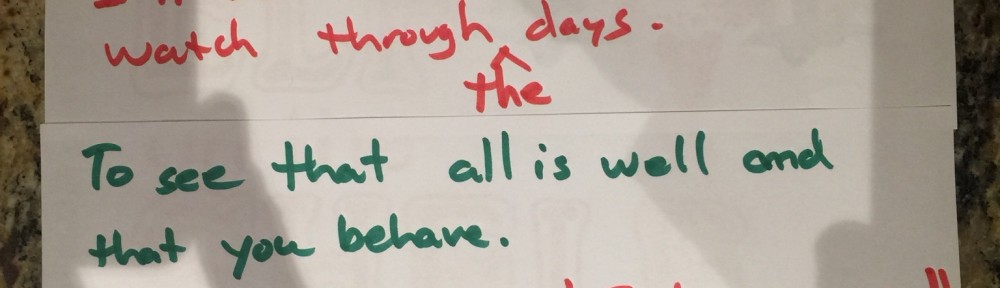 watch through the days.
To see that all is well and
that you behave.